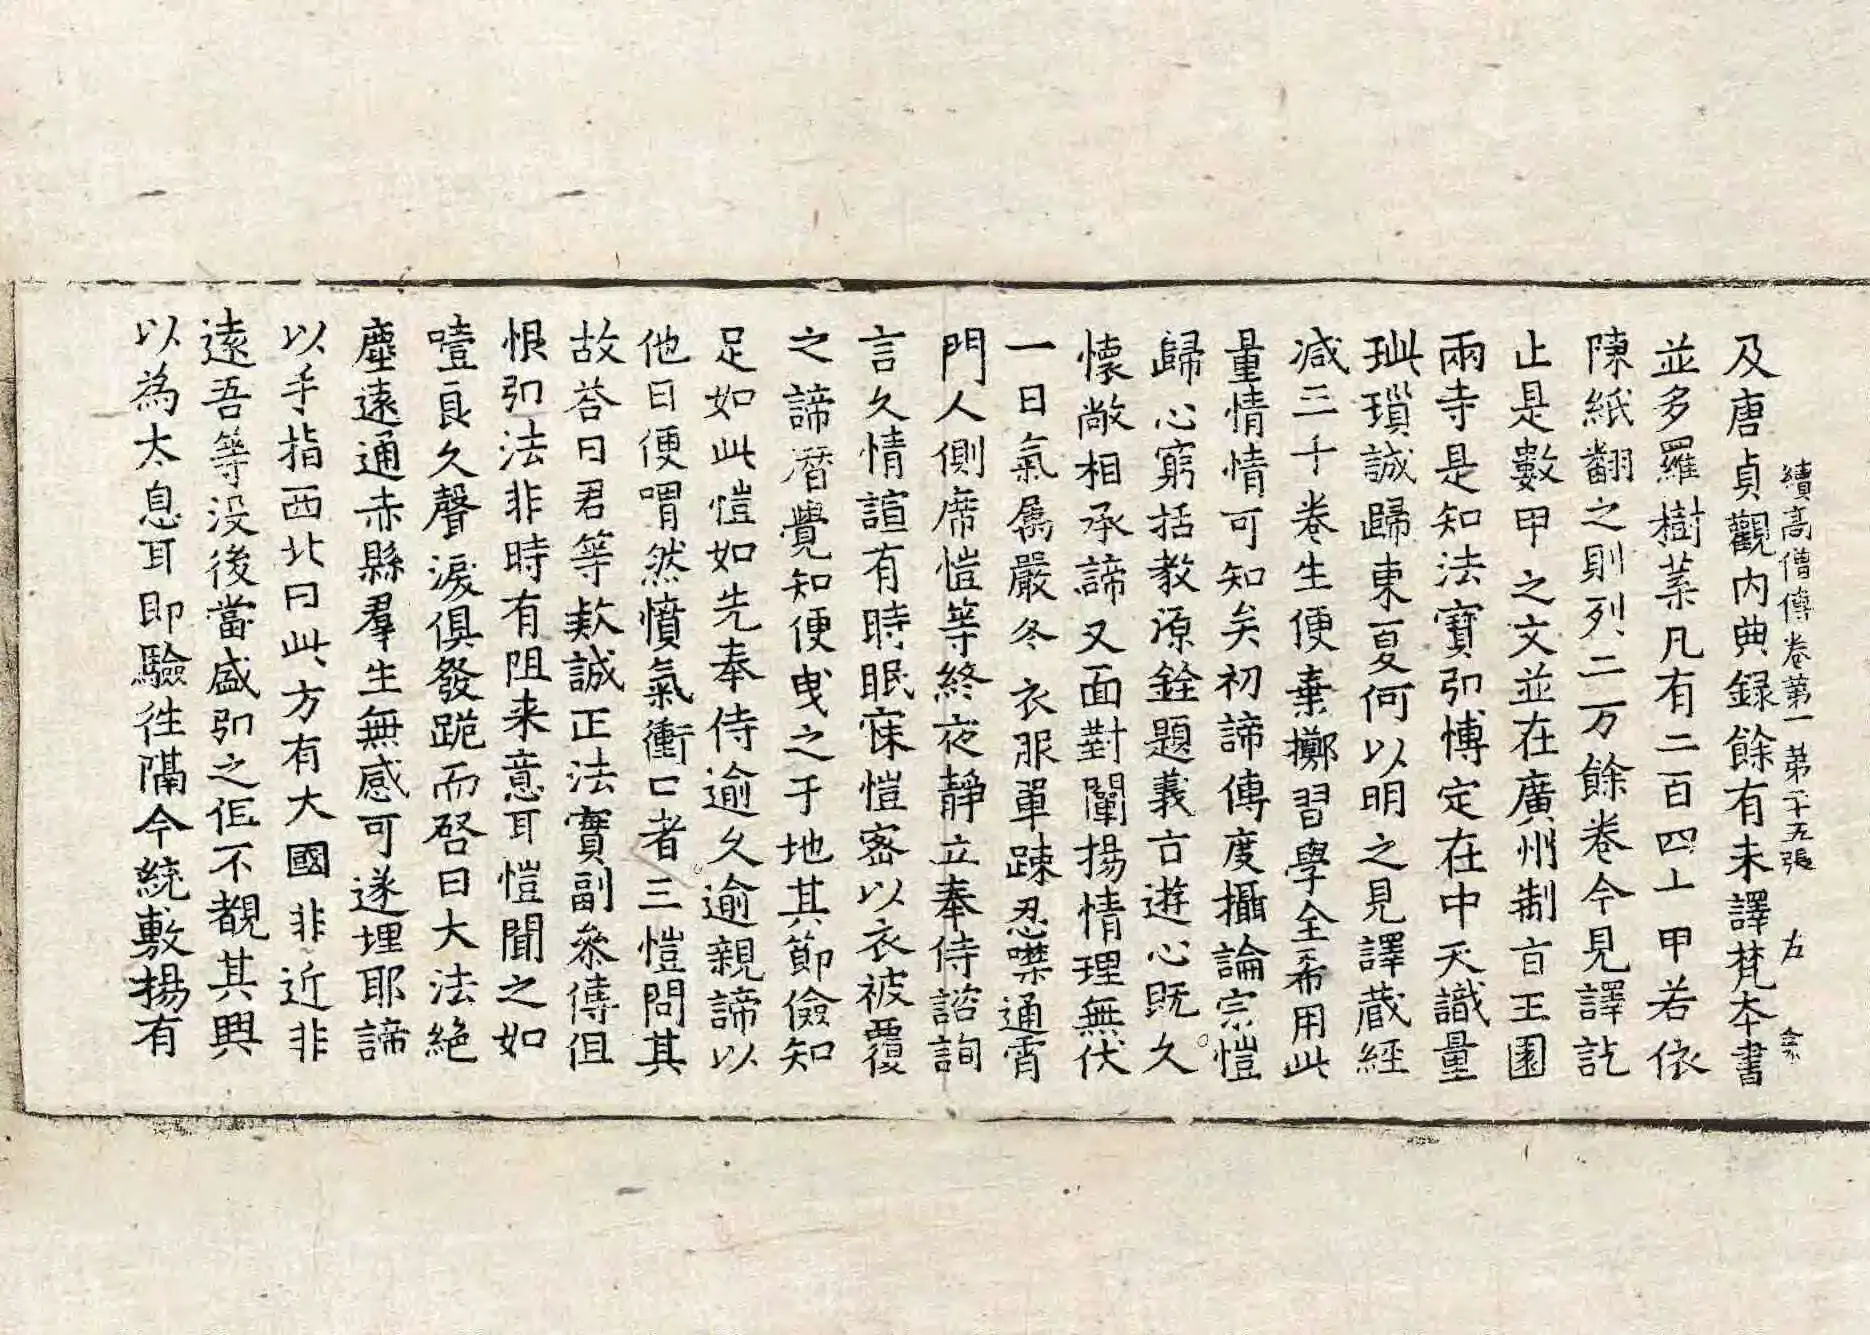 續高僧傳卷第一 第二十五張 左
及唐貞觀內典録餘有未譯梵夲書
並多羅樹葉凡有二百四十甲若依
陳紙翻之則列二万餘卷今見譯訖
止是數甲之文並在廣州制旨王園
兩寺是知法寶弘博定在中天識量
玼瑣誠歸東夏何以明之見譯蔵經
减三千卷生便棄擲習學全希用此
量情情可知矣初諦傳度攝論宗愷
歸心窮括教源銓題義旨遊心既久
懷敞相承諦又面對闡揚情理無伏
一日氣属嚴冬衣服單踈忍噤通霄
門人側席愷等終夜靜立奉侍諮詢
言久情諠有時眠寐愷密以衣被覆
之諦暦覺知便曳之于地其節儉知
足如此愷如先奉侍逾久逾親諦以
他日便喟然憤氣衝口者三愷問其
故荅曰君等欵誠正法實副叅傳但
恨弘法非時有阻来意耳愷聞之如
噎良久聲淚俱發跪而啓曰大法絶
塵逺通赤縣羣生無感可遂埋耶諦
以手指西北曰此方有大國非近非
逺吾等没後當盛弘之但不覩其興
以為太息耳即驗徃隔今統敷揚有